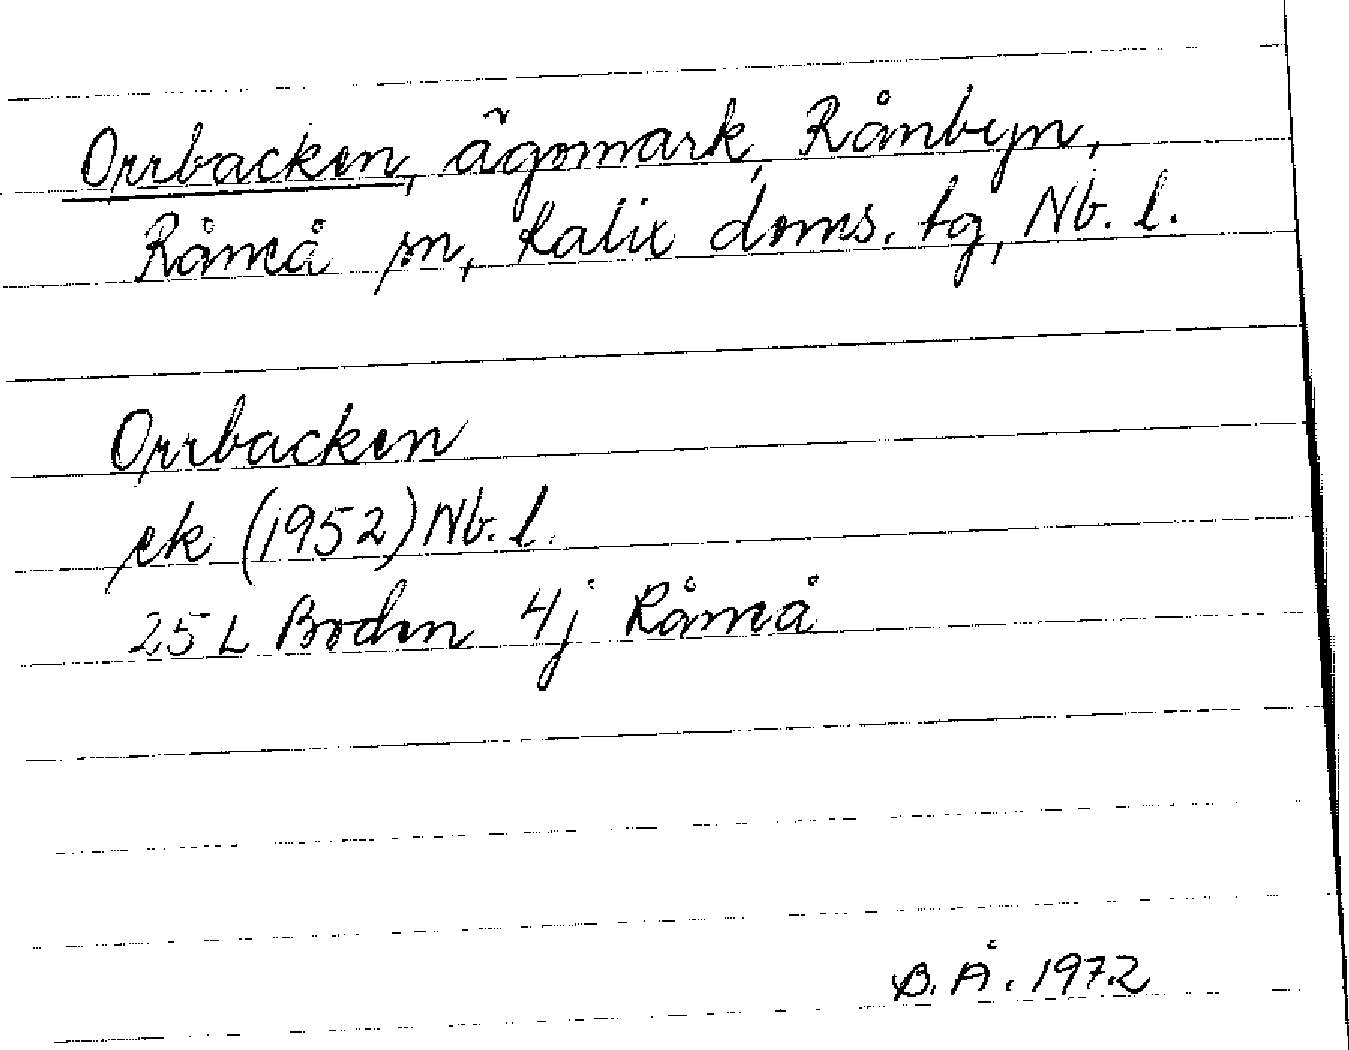 Orrbacken, ägomark, Rånbyn,
Råneå sn, Kalix doms. tg, Nb. l.
Orrbacken
ek (1952) Nb. l.
25 L Boden 4j Råneå
B. Å. 1972